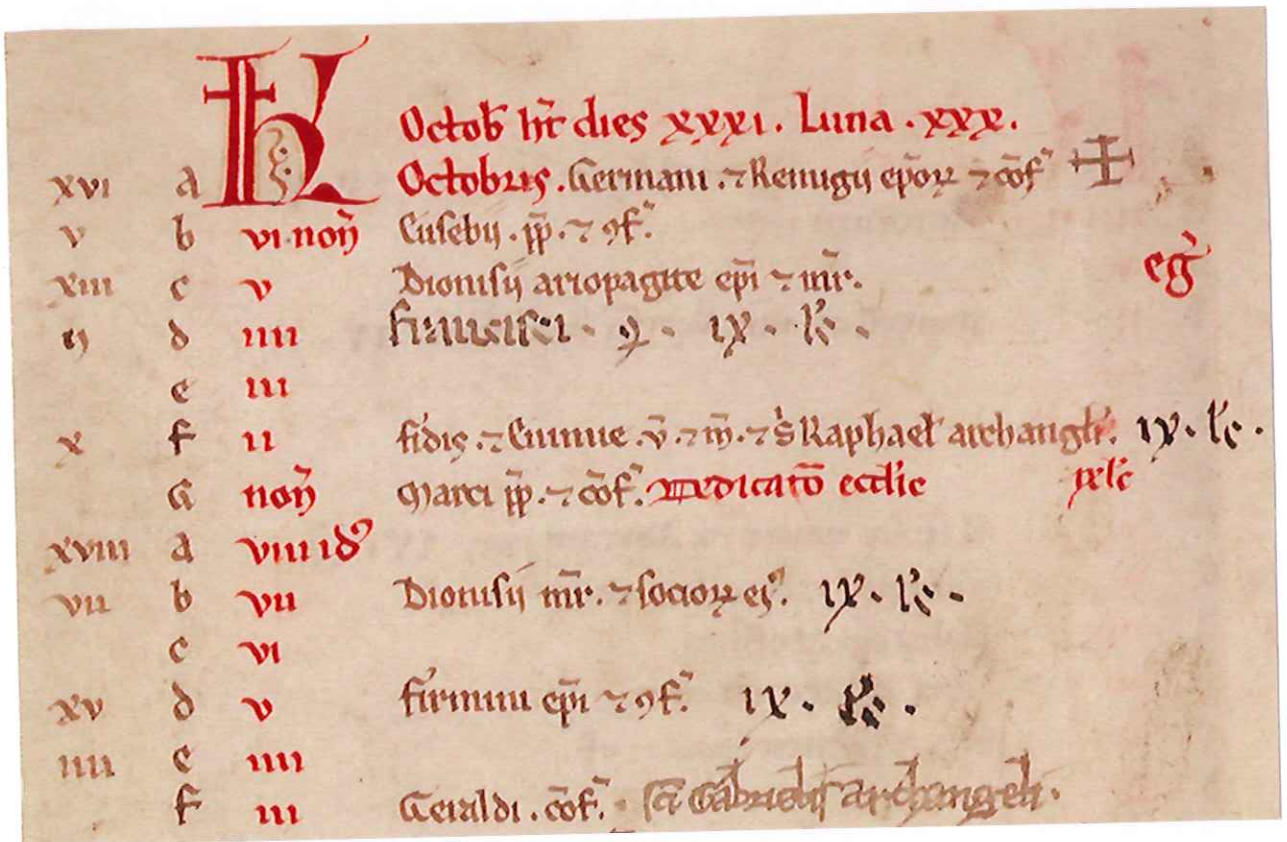 KL Octob hr̄ dies xxxi. Luna. xxx.
xvi a Octobris. Germani. ⁊ Remigij ep̄oꝝ ⁊ c̄of.
v b vi non̄ Eusebij. pp̄. ⁊ ꝯf.
xiii c v Dionisij ariopagite ep̄i ⁊ mr̄.
ij d iiii francisci. ꝯ. ix. lc̄.
e iii
x f ii fidis. ⁊ .v̄. ⁊ m̄. ⁊ S Raphael archangli. ix. lc̄.
G non̄ Marci pp̄. ⁊ c̄of. Dedicatō ecclie ixlc̄
xviii a viii id
vii b vii Dionisij mr̄. ⁊ socioꝝ eꝰ. ix. lc̄.
c vi
xv d v firmini ep̄i ⁊ ꝯf. ix. lc̄.
iiii e iiii
f iii Geraldi. c̄of. sc̄i Gabrielis archangeli.